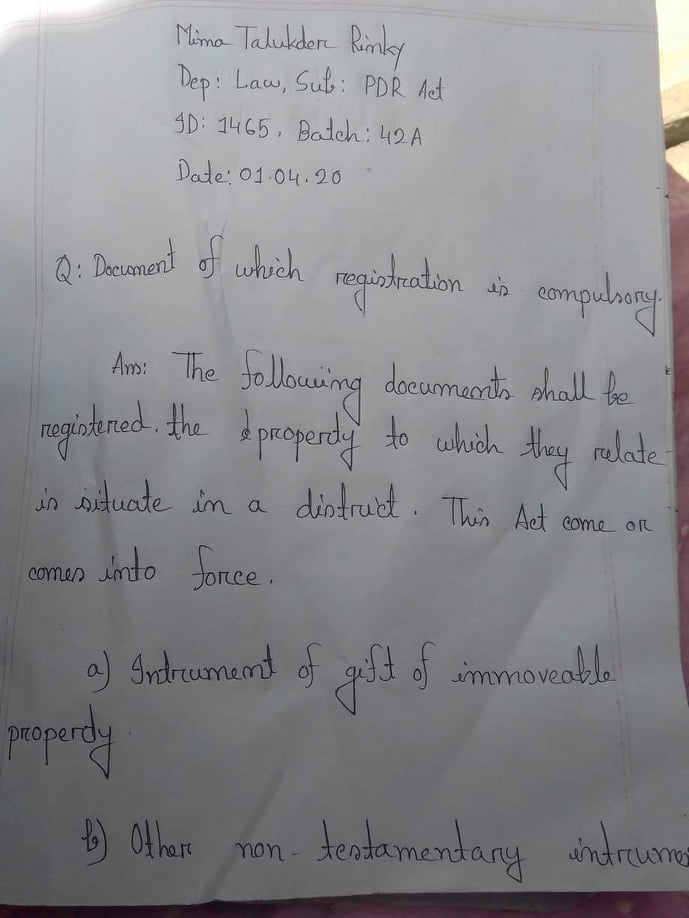 Mima Talukder Rinky
Dep: Law, Sub: PDR Act
ID: 1465, Batch: 42A
Date: 01.04.20
Q: Document of which registration is compulsory.
Ans: The following documents shall be
registered. the property to which they relate
is situate in a district. This Act come or
comes into force.
a) Intrument of gift of immoveable
property.
b) Other non-testamentary intrumes